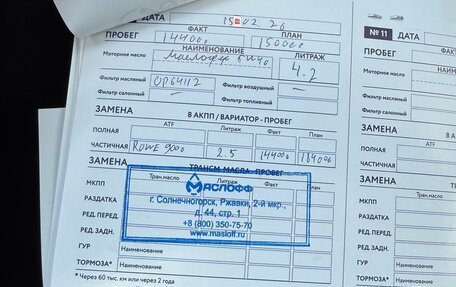 ДАТА 15.02.26
ПРОБЕГ ФАКТ ПЛАН
144000 150000
НАИМЕНОВАНИЕ ЛИТРАЖ
Моторное масло 4.2
Фильтр масляный OP641/2 Фильтр воздушный —
Фильтр салонный — Фильтр топливный
ЗАМЕНА В АКПП / ВАРИАТОР - ПРОБЕГ
ATF Литраж Факт План
ПОЛНАЯ
ЧАСТИЧНАЯ ROWE 9000 2.5 144000 184000
ЗАМЕНА ТРАНСМ. МАСЛА - ПРОБЕГ
Тран.масло Литраж Факт План
МКПП
МАСЛОФФ
РАЗДАТКА
г. Солнечногорск, Ржавки, 2-й мкр.,
РЕД. ПЕР.
д. 44, стр. 1
РЕД. ЗАДН.
+8 (800) 350-75-70
www.masloff.ru
ГУР Наименование
ТОРМОЗА* Наименование
* Через 60 тыс. км или через 2 года
№ 11 ДАТА
ПРОБЕГ
Моторное масло
Фильтр масляный
Фильтр салонный
ЗАМЕНА
ПОЛНАЯ
ЧАСТИЧНАЯ
ЗАМЕНА
МКПП
РАЗДАТКА
РЕД. ПЕР.
РЕД. ЗАДН.
ГУР Наименование
ТОРМОЗА* Наименование